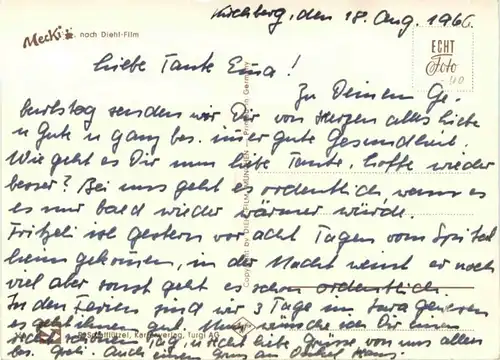 Kirchberg, den 18. Aug. 1966.
Mecki nach Diehl-Film
ECHT
Foto
Liebe Tante Emma!
Zu Deinem Ge-
burtstag senden wir Dir von Herzen alles Liebe
u Gute u ganz bes. immer gute Gesundheit.
Wie geht es Dir nun liebe Tante, hoffe wieder
besser? Bei uns geht es ordentlich wenn es
es nur bald wieder wärmer würde.
Fritzli ist gestern vor acht Tagen vom Spital
heim gekommen, in der Nacht weint er noch
viel aber sonst geht es schon ordentlich
In den Ferien sind wir 3 Tage im gewesen
es geht ihnen gut. Nun wünsche ich Dir einen
schönen Tag, u recht liebe Grüsse von uns allen
bes. Auch einen Gruss an Onkel Hans.
Copyright by DIEHL-FILM MÜNCHEN - Printed in Germany
Kartenverlag, Turgi AG